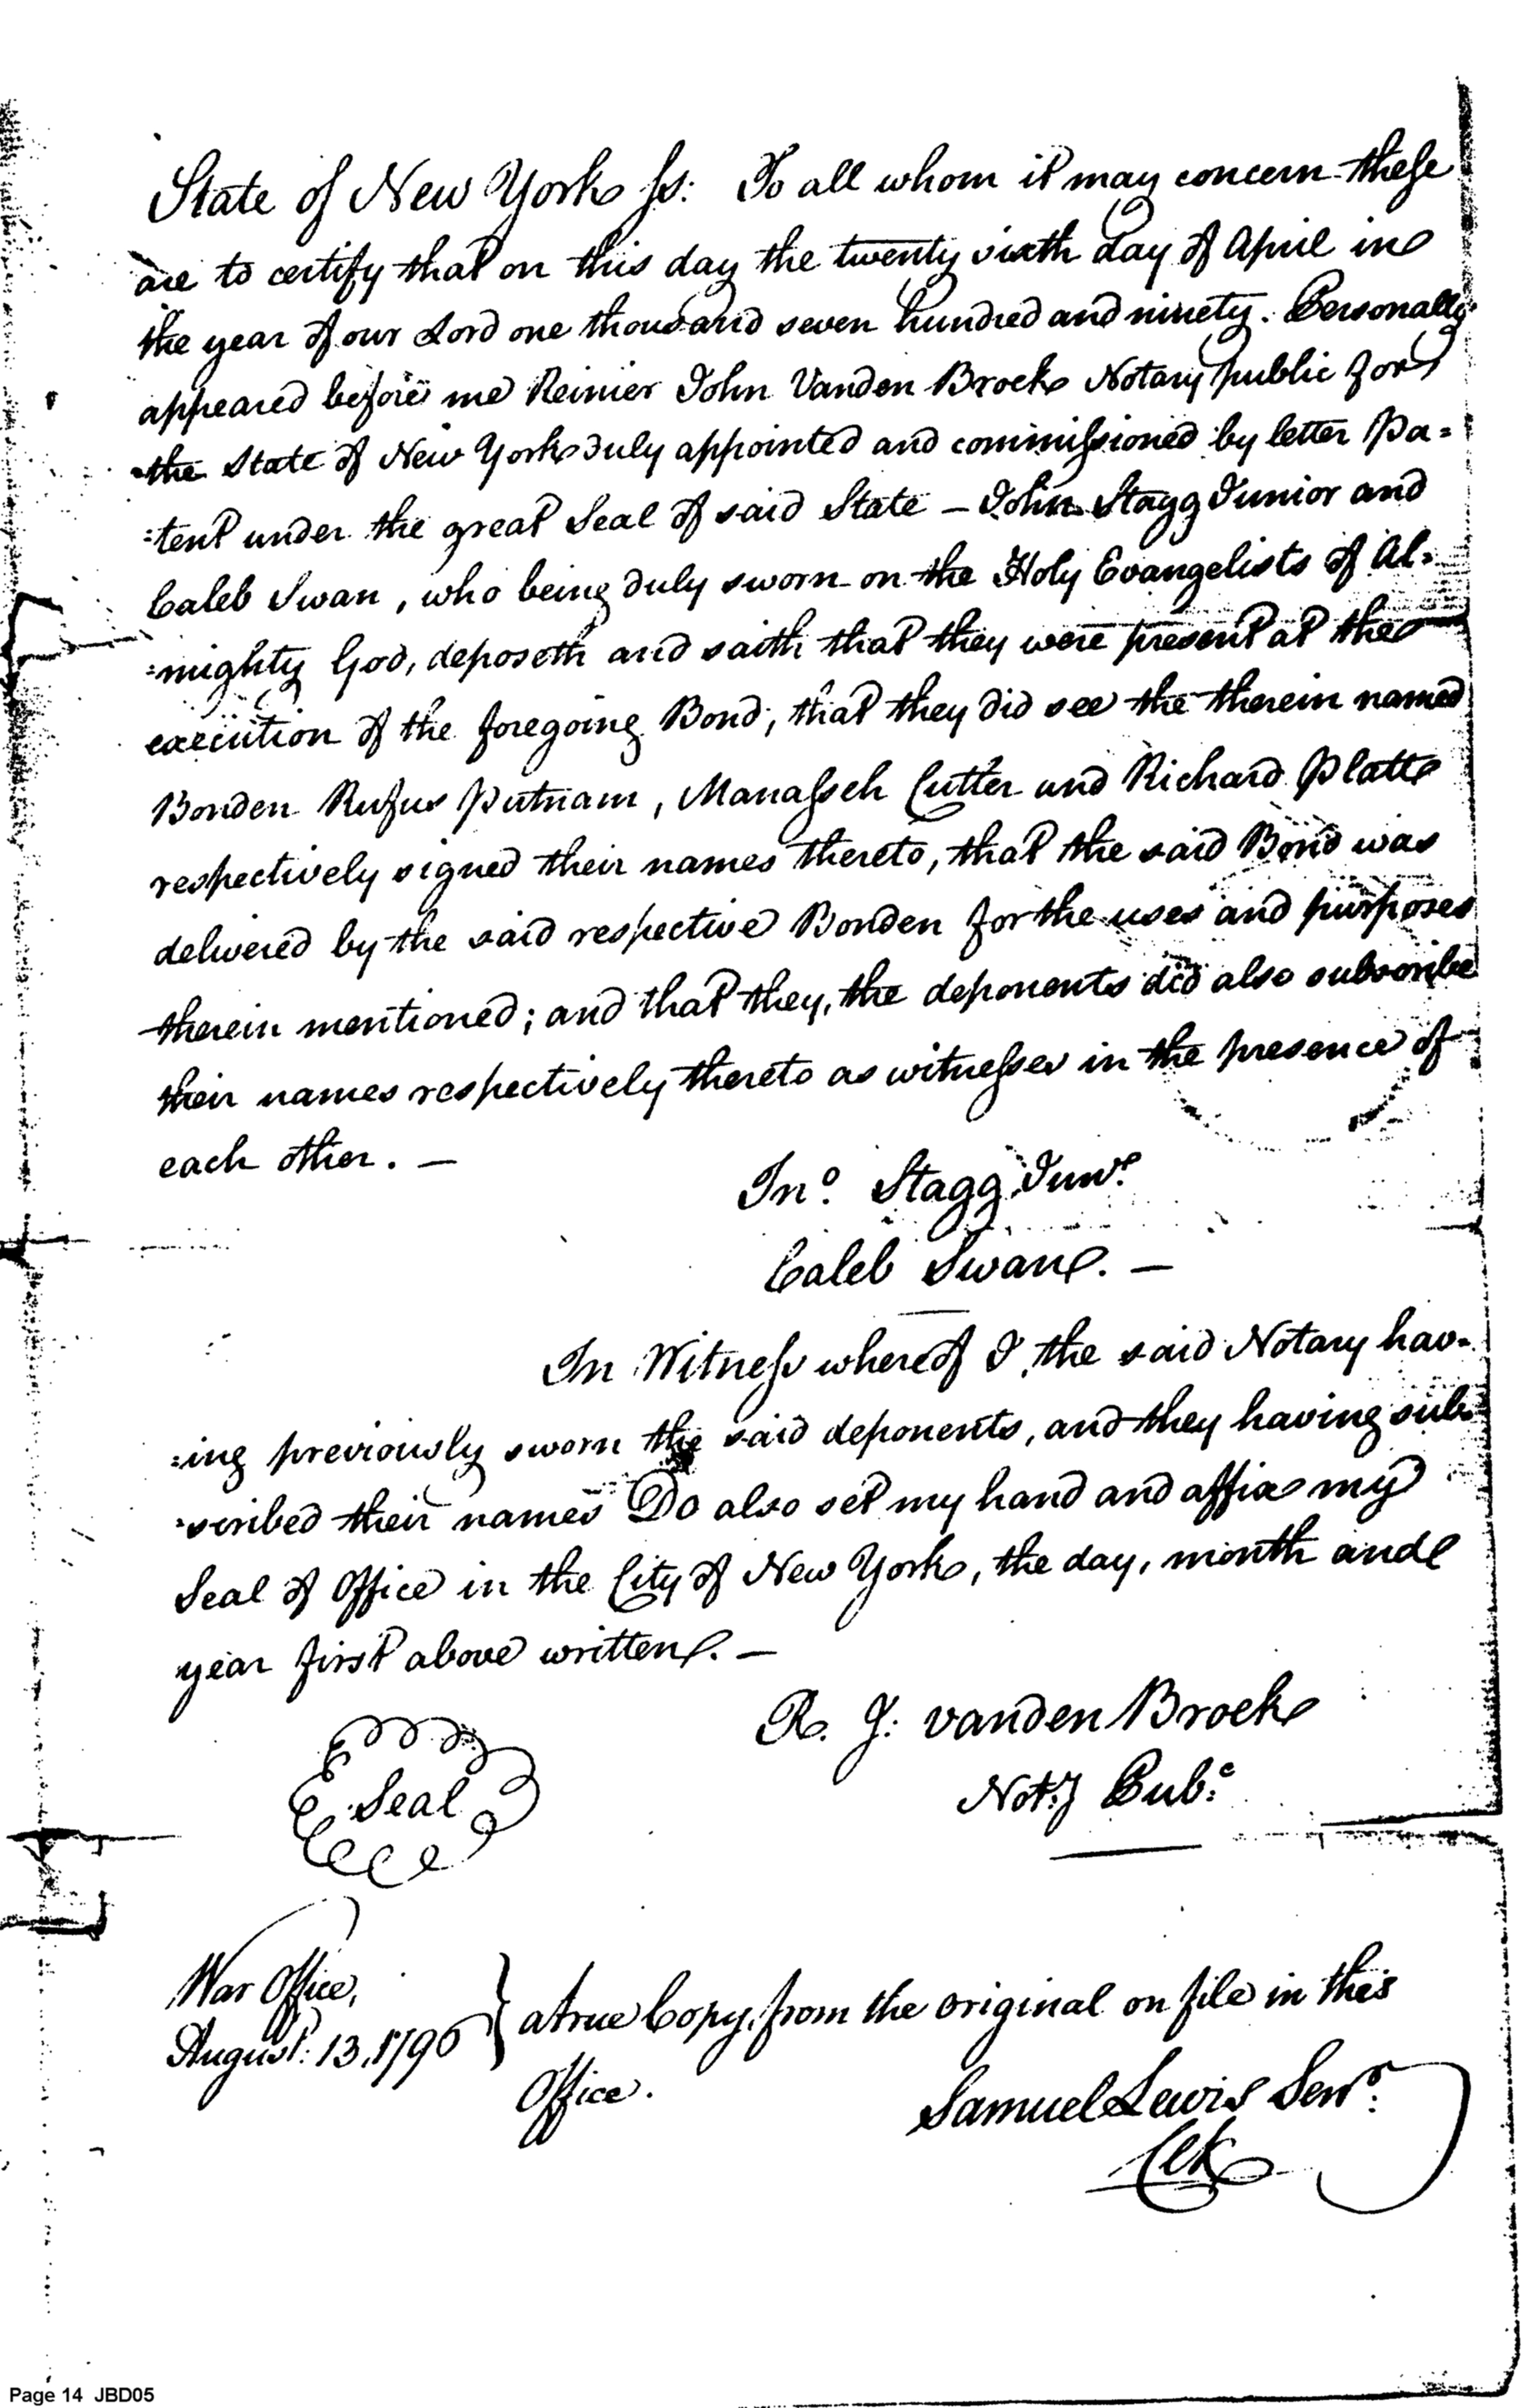 State of New York ss: To all whom it may concern these
are to certify that on this day the twenty sixth day of April in
the year of our Lord one thousand seven hundred and ninety. Personally
appeared before me Reinier John Vanden Broek Notary public for
the State of New York duly appointed and commissioned by letter Pa=
=tent under the great Seal of said State — John Stagg Junior and
Caleb Swan, who being duly sworn on the Holy Evangelists of Al=
=mighty God, deposeth and saith that they were present at the
execution of the foregoing Bond; that they did see the therein named
Bonden Rufus Putnam, Manasseh Cutter and Richard Platt
respectively signed their names thereto, that the said Bond was
delivered by the said respective Bonden for the uses and purposes
therein mentioned; and that they, the deponents did also subscribe
their names respectively thereto as witnesses in the presence of
each other. —
Jno. Stagg Junr.
Caleb Swan. —
In Witness whereof I, the said Notary hav=
=ing previously sworn the said deponents, and they having sub=
=scribed their names Do also set my hand and affix my
Seal of Office in the City of New York, the day, month and
year first above written. —
R. J: vanden Broek
Not:y Pub:c
Seal
War Office,
August: 13, 1790 } a true Copy, from the original on file in this
Office.
Samuel Lewis Senr.
Clk
Page 14 JBD05